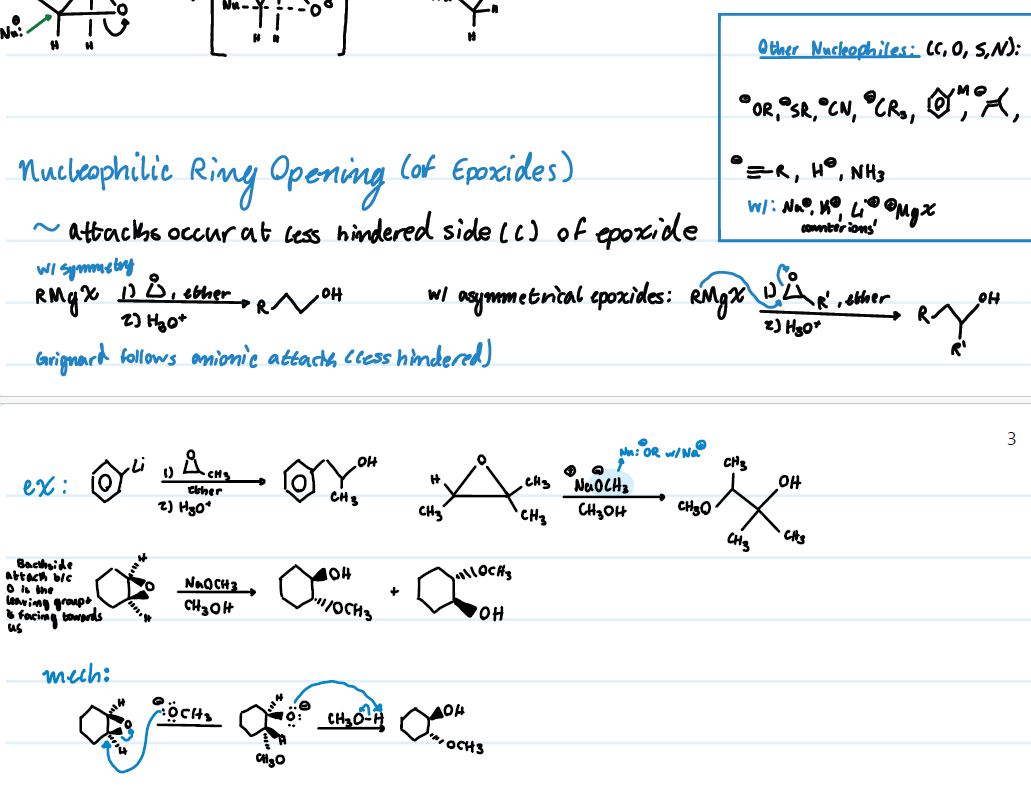 Nu:⊖
O
H H
Nu
O
H H
H
H
Other Nucleophiles: (C, O, S, N):
⊖OR, ⊖SR, ⊖CN, ⊖CR₃, M⊖,
⊖≡-R, H⊖, NH₃
w/: Na⊕, K⊕, Li⊕ ⊕MgX
counterions
Nucleophilic Ring Opening (of Epoxides)
~ attacks occur at less hindered side (C) of epoxide
w/ symmetry
RMgX 1) O, ether R OH
2) H₃O⁺
w/ asymmetrical epoxides: RMgX 1) O R', ether R OH
2) H₃O⁺ R'
Grignard follows anionic attack (less hindered)
3
ex: Li 1) O CH₃ OH
ether CH₃
2) H₃O⁺
Nu:⊖ OR w/ Na⊕
H O CH₃ ⊕ ⊖ NaOCH₃ CH₃ OH
CH₃ CH₃ CH₃OH CH₃O CH₃ CH₃
Backside
attack b/c
O is the
leaving group +
is facing towards
us
H O H NaOCH₃ OH + OCH₃
CH₃OH OCH₃ OH
mech:
H O H ⊖:OCH₃ H O:⊖ H CH₃O-H OH
CH₃O OCH₃